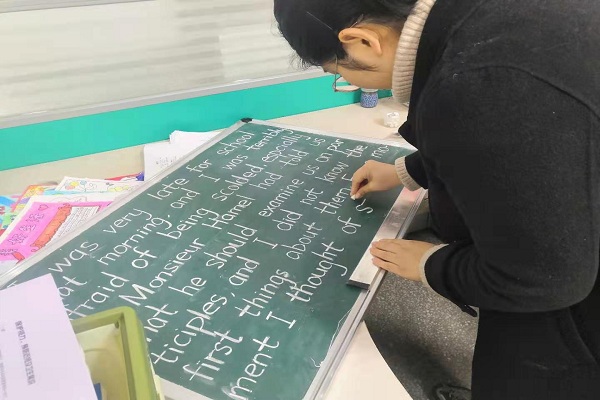 was very late for school
morning, and I was terribl
raid of being scolded, especially
Monsieur Hamel had told us
hat he should examine us on par
ticiples, and I did not know the
first things about them mo-
ment I thought of s